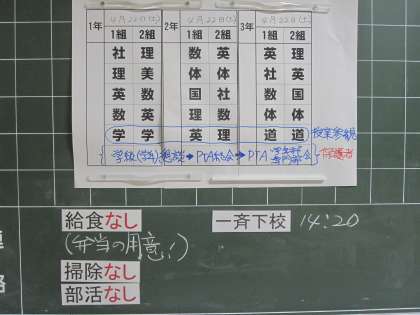 1年 4月22日(土) 2年 4月22日(土) 3年 4月22日(土)
1組 2組 1組 2組 1組 2組
社 理 数 英 英 理
理 美 体 体 社 英
英 数 国 社 数 国
数 英 英 数 体 体
学 学 英 理 道 道 授業参観
PTA総会 → PTA 保護者
給食なし 一斉下校 14:20
(弁当の用意!)
掃除なし
部活なし